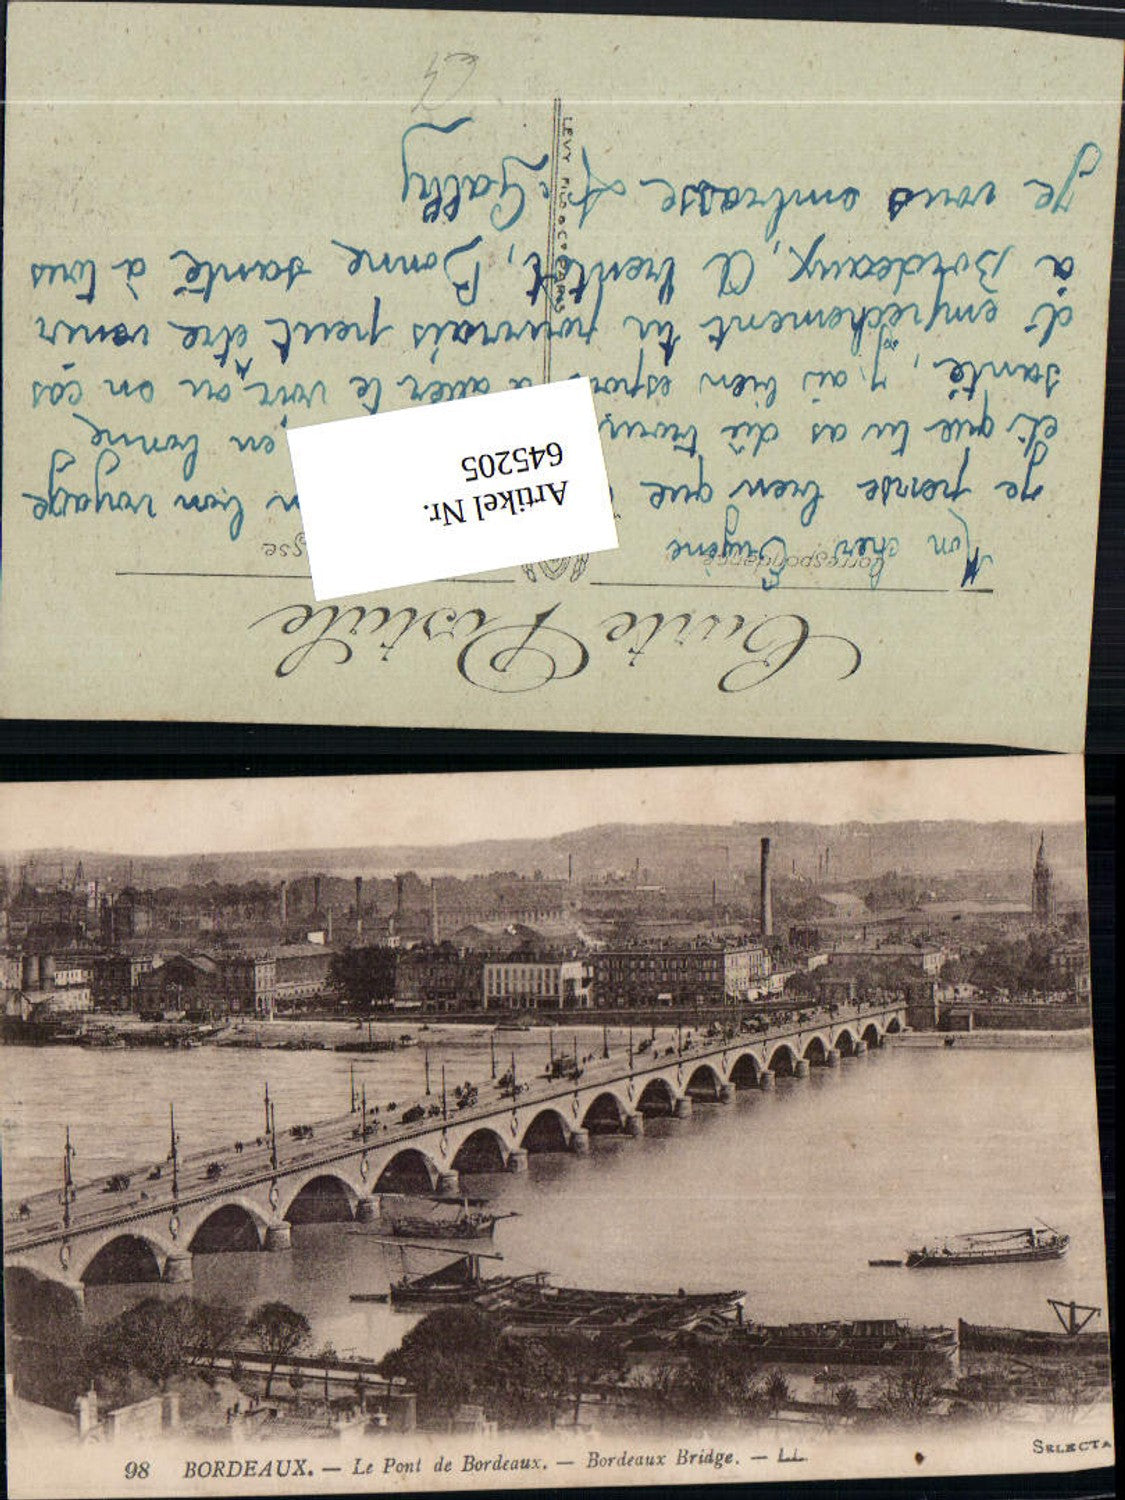 Carte Postale
Correspondance
Mon cher Eugène
Je pense bien que bon voyage
et que tu as dû en bonne
santé, j'ai bien espoir d'aller te voir, ou en cas
d'empêchement tu pourrais peut être venir
à Bordeaux, Bonne santé à tous
Je vous embrasse
LEVY FILS & CO PARIS
Artikel Nr.
645205
98 BORDEAUX. — Le Pont de Bordeaux. — Bordeaux Bridge. — LL.
SELECTA